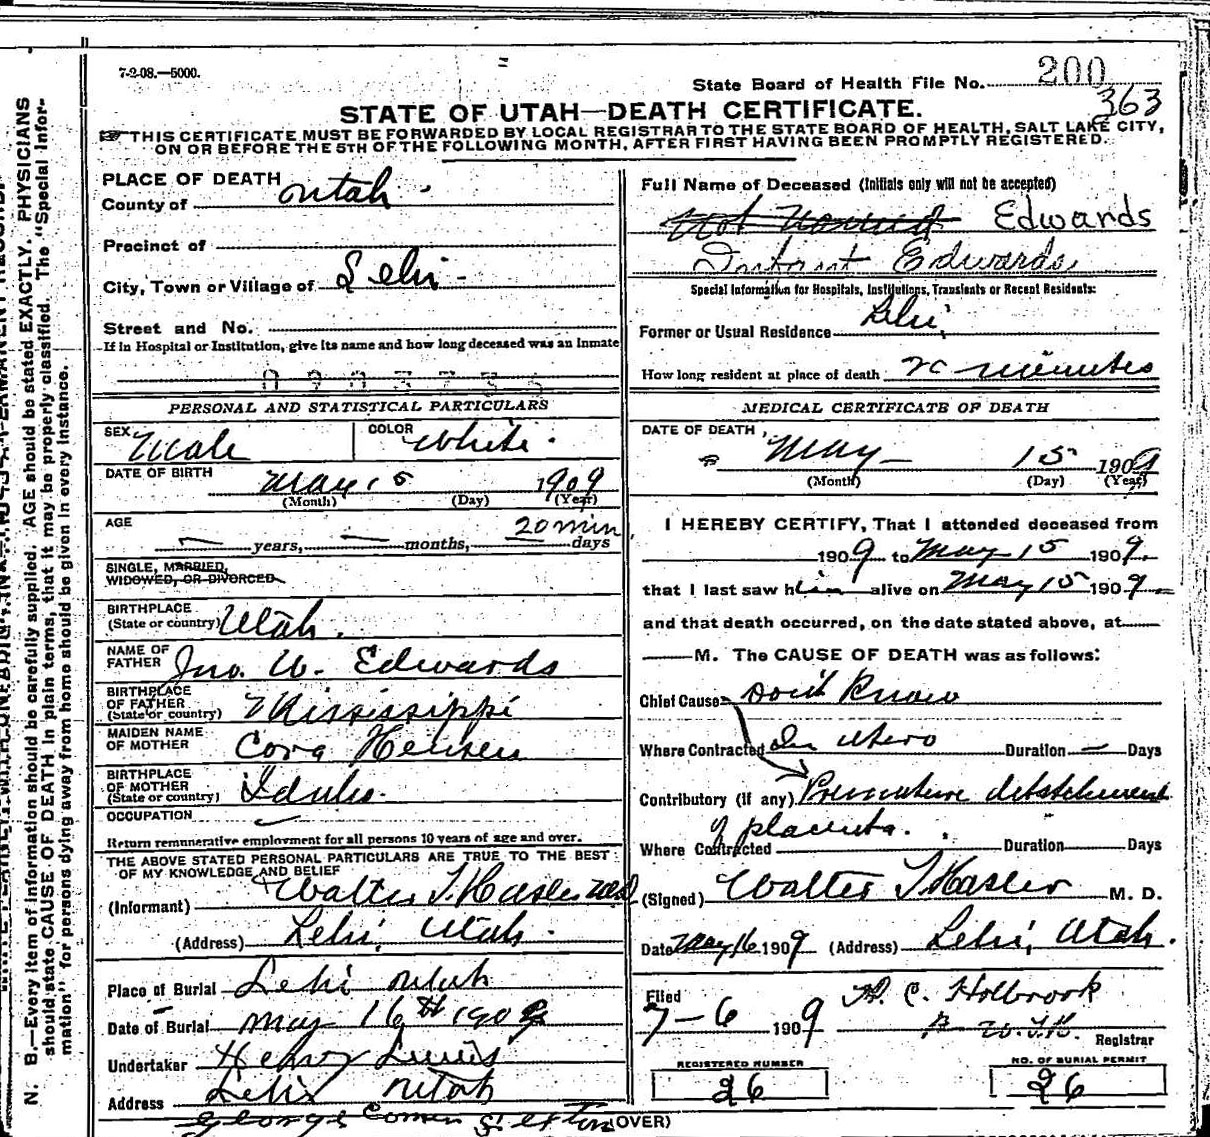 7-2-08.—5000.
State Board of Health File No. 200
363
STATE OF UTAH—DEATH CERTIFICATE.
THIS CERTIFICATE MUST BE FORWARDED BY LOCAL REGISTRAR TO THE STATE BOARD OF HEALTH, SALT LAKE CITY,
ON OR BEFORE THE 5TH OF THE FOLLOWING MONTH, AFTER FIRST HAVING BEEN PROMPTLY REGISTERED.
N. B.—Every item of information should be carefully supplied. AGE should be stated EXACTLY. PHYSICIANS
should state CAUSE OF DEATH in plain terms, that it may be properly classified. The "Special Infor-
mation" for persons dying away from home should be given in every instance.
PLACE OF DEATH
County of Utah
Precinct of
City, Town or Village of Lehi
Street and No.
If in Hospital or Institution, give its name and how long deceased was an Inmate
PERSONAL AND STATISTICAL PARTICULARS
SEX Male COLOR White
DATE OF BIRTH May 15 1909
(Month) (Day) (Year)
AGE 20 min
years, months, days
SINGLE, MARRIED,
WIDOWED, OR DIVORCED
BIRTHPLACE
(State or country) Utah.
NAME OF
FATHER Jno. W. Edwards
BIRTHPLACE
OF FATHER
(State or country) Mississippi
MAIDEN NAME
OF MOTHER Cora
BIRTHPLACE
OF MOTHER
(State or country) Idaho.
OCCUPATION
Return remunerative employment for all persons 10 years of age and over.
THE ABOVE STATED PERSONAL PARTICULARS ARE TRUE TO THE BEST
OF MY KNOWLEDGE AND BELIEF
(Informant) Walter T. Hasler
(Address) Lehi, Utah.
Place of Burial Lehi Utah
Date of Burial May 16th 1909
Undertaker Henry Lewis
Address Lehi Utah
George Sexton
(OVER)
Full Name of Deceased (Initials only will not be accepted)
Not Named Edwards
Infant Edwards
Special Information for Hospitals, Institutions, Transients or Recent Residents:
Former or Usual Residence Lehi,
How long resident at place of death 20 minutes
MEDICAL CERTIFICATE OF DEATH
DATE OF DEATH
May 15 1909
(Month) (Day) (Year)
I HEREBY CERTIFY, That I attended deceased from
1909 to May 15 1909
that I last saw him alive on May 15 1909
and that death occurred, on the date stated above, at
M. The CAUSE OF DEATH was as follows:
Chief Cause Don't Know
Where Contracted In Utero Duration — Days
Contributory (if any) Premature detatchment
of placenta.
Where Contracted Duration Days
(Signed) Walter T Hasler M. D.
Date May 16 1909 (Address) Lehi, Utah.
Filed
7-6 1909 Holbrook
Registrar
REGISTERED NUMBER
26
NO. OF BURIAL PERMIT
26